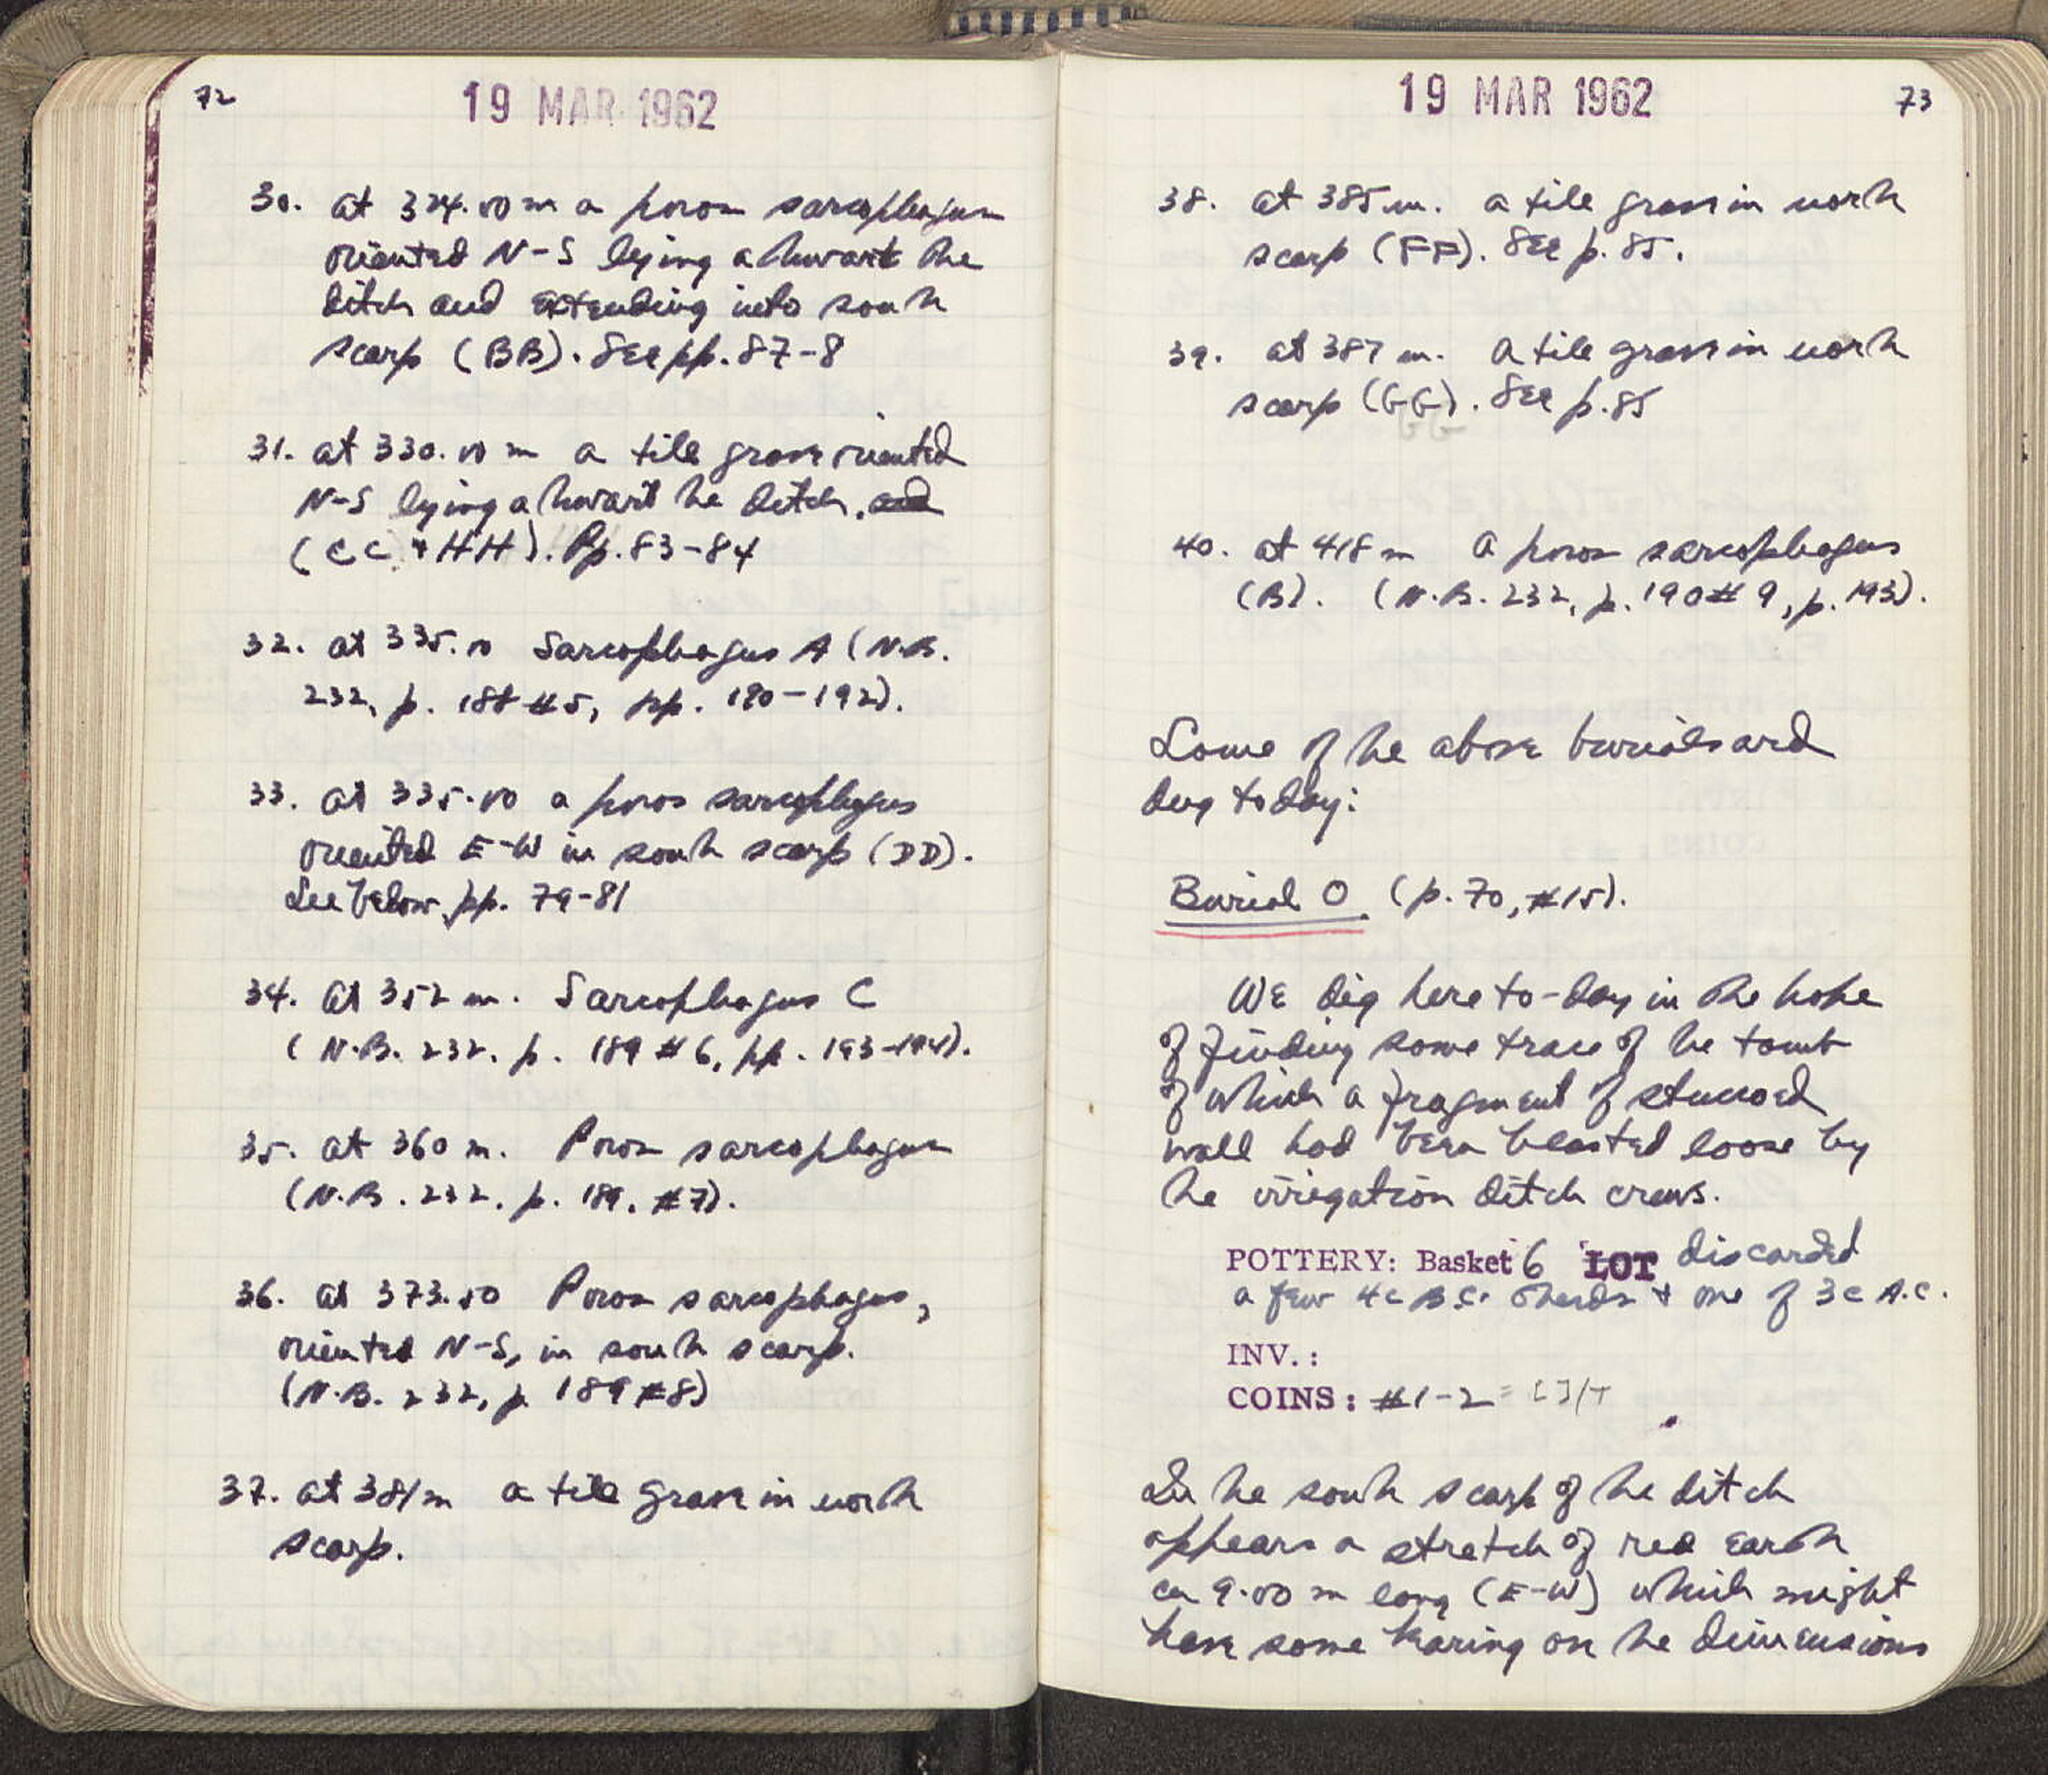 72
19 MAR 1962
30. at 324.00 m a poros sarcophagus
oriented N-S lying athwart the
ditch and extending into south
scarp (BB). See pp. 87-8
31. at 330.00 m a tile grave oriented
N-S lying athwart the ditch. and
(CC + HH). Pp. 83-84
32. at 335.00 Sarcophagus A (N.B.
232, p. 188 #5, pp. 190-192).
33. at 335.00 a poros sarcophagus
oriented E-W in south scarp (DD).
See below, pp. 79-81
34. at 352 m. Sarcophagus C
(N.B. 232, p. 189 #6, pp. 193-194).
35. at 360 m. Poros sarcophagus
(N.B. 232, p. 189, #7).
36. at 373.50 Poros sarcophagus,
oriented N-S, in south scarp.
(N.B. 232, p 189 #8)
37. at 381 m a tile grave in north
scarp.
19 MAR 1962
73
38. at 385 m. a tile grave in north
scarp (FF). See p. 85.
39. at 387 m. a tile grave in north
scarp (GG). See p. 85
GG
40. at 418 m a poros sarcophagus
(B). (N.B. 232, p. 190 #9, p. 193).
Some of the above burials are
dug today:
Burial O (p. 70, #15).
We dig here to-day in the hope
of finding some trace of the tomb
of which a fragment of stuccoed
wall had been blasted loose by
the irrigation ditch crews.
POTTERY: Basket 6 LOT discarded
a few 4c B.C. sherds + one of 3c A.C.
INV.:
COINS: #1-2 =
In the south scarp of the ditch
appears a stretch of red earth
ca 9.00 m long (E-W) which might
have some bearing on the dimensions